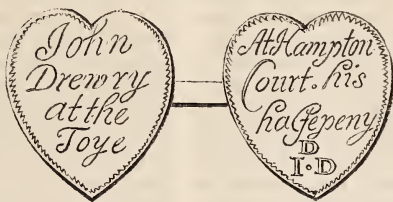 John
Drewry
at the
Toye
At Hampton
Court. his
halfepeny
D
I·D